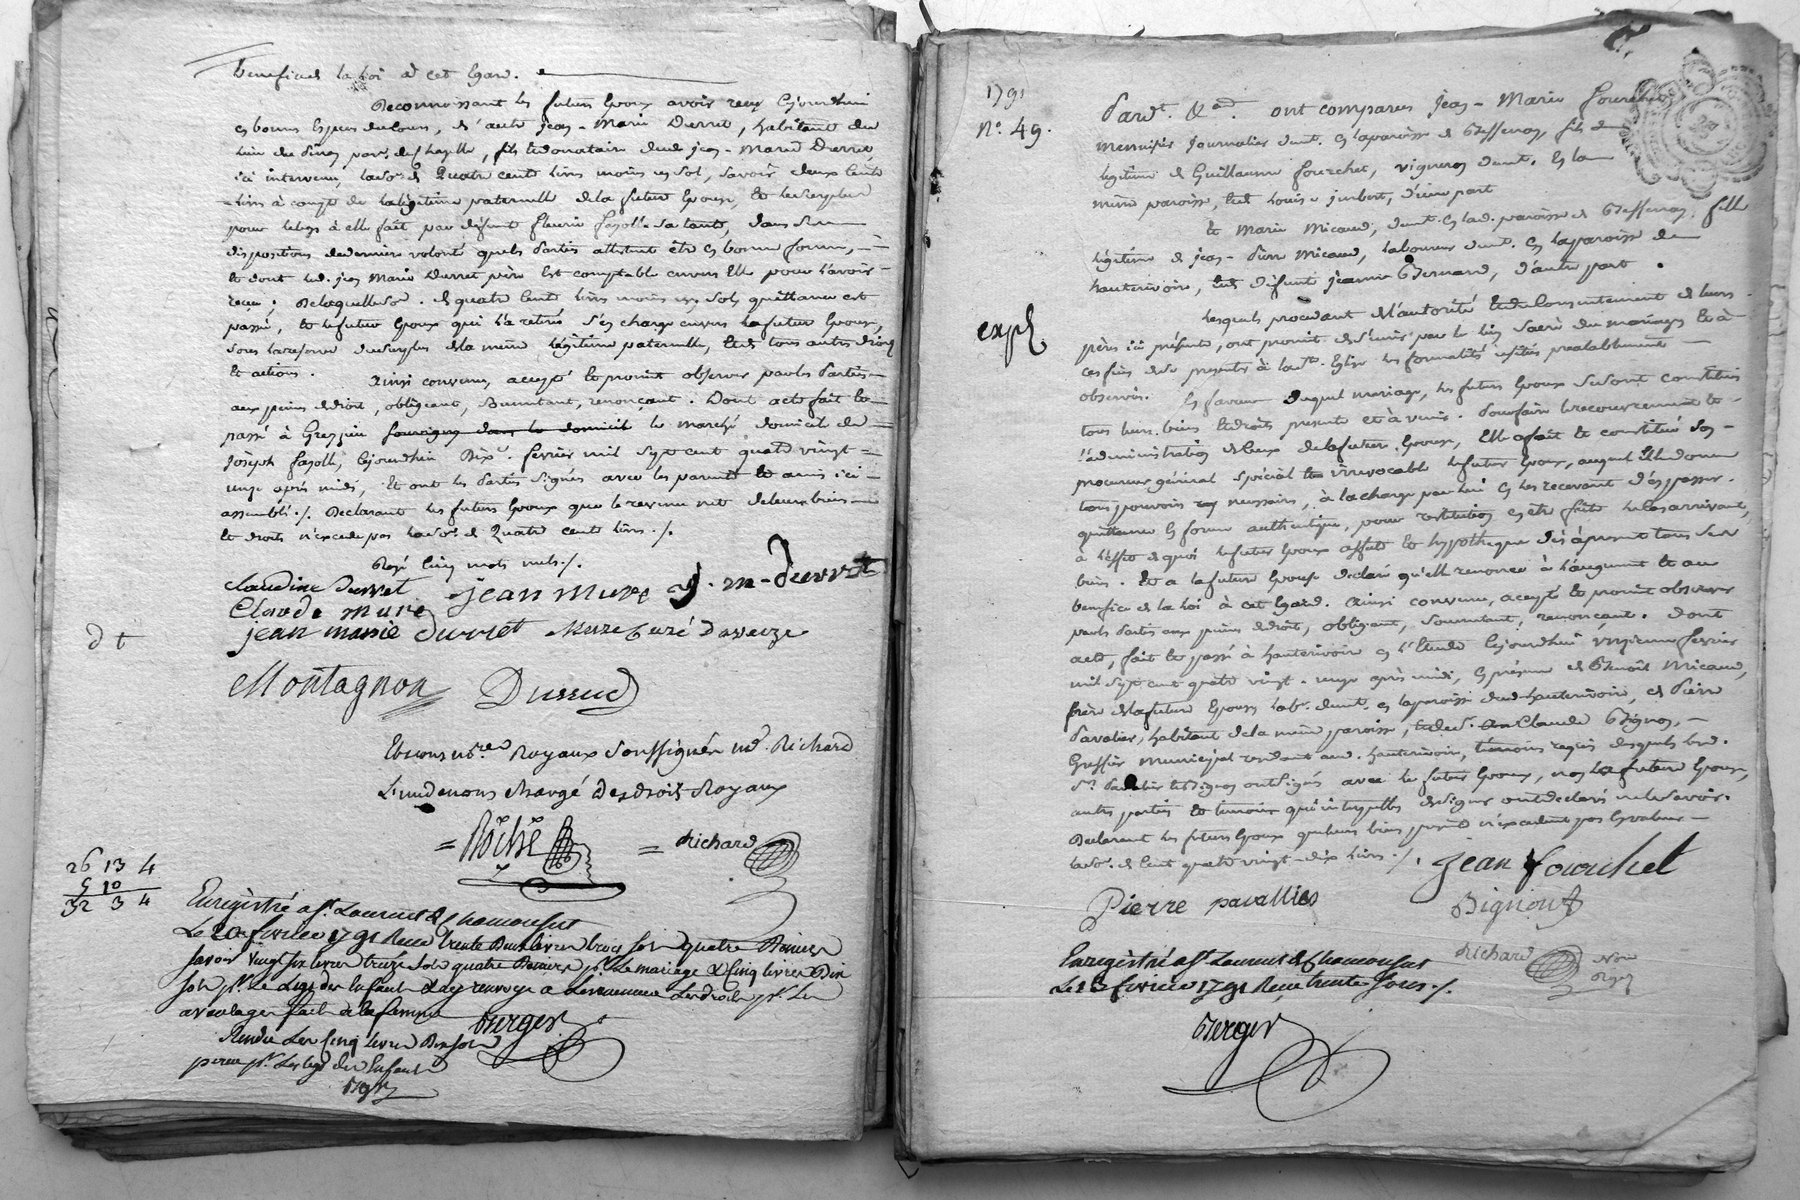 benefices la loi a cet egard.
Reconnoissant les futurs Epoux avoir recu cejourdhui
en bonnes Especes de cours, de jean-Marie Durret, habitant du
lieu du parse de Chazelle, fils et donataire dud. jean-Marie Durret,
ici intervenu, de quatre cents livres moins un sol, savoir deux cents
livres a compte de la légitime paternelle de la future Epouse, et le surplus
pour le legs à elle fait par deffunt fleurie fayolle sa tante, dans
dispositions de derniere volonté quels parties attestent être en bonne forme,
et dont led. jean Marie Durret père est comptable envers Elle pour l'avoir
reçu; De laquelle so. de quatre cents livres moins un sol, quittance est
passé, et le futur Epoux qui l'a retiré s'en charge envers la future Epouse,
sous la reserve du surplus de la même légitime paternelle, et de tous autres droits
et actions.
ainsi convenu, accepté et promis observer par les parties
aux peines de droit, obligeant, soumettant, renonçant. Dont acte fait et
passé à Grezieu le marché domicile de
Joseph fayolle, cejourdhui Dix fevrier mil sept cent quatre vingt
onze après midi, Et ont les parties signés avec les parents et amis ici
assemblé./. Declarant les futurs Epoux que le revenu net de leurs biens
et droits n'excede pas la so. de quatre cents livres./.
Rayé cinq mots nuls./.
claudine Durret jean mure J. m. durret
Claude mure
jean marie durret Mure curé d'aveize
dt
Montagnon Dussud
Et nous nres. Royaux soussignés Me. Richard
L'un de nous chargé des droits Royaux
= Roche = Richard
26 13 4
5 10
32 3 4
Enregistré a St. Laurent de Chamousset
Le 20 fevrier 1791 Recu trente Deux livres trois sols quatre Deniers
savoir vingt six livres treize sols quatre deniers pr. Le mariage & cinq livres Dix
sols pr. Le Legs des Enfants & ay renvoye a Les droits pr. Les
avantages fait a la femme berger
Rendu Les cinq livres Dix sols
percu pr. Les legs des Enfants
1791
N°. 49.
Pardt. &ca. ont comparus jean-Marie fourchet
journalier demt. en la paroisse de Bessenay, fils
légitime de Guillaume fourchet, vigneron demt. en la
même paroisse, et de Louise jmbert, d'une part
Et Marie Micaud, demt. en lad. paroisse de Bessenay, fille
légitime de jean-Pierre Micaud, laboureur demt. en la paroisse de
hauterivoire, et de deffunte jeanne Bernard, d'autre part.
expé.
Lesquels procedant de l'autorité et du consentement de leurs
pères ici présents, ont promis de s'unir par le lien sacré du mariage et à
ces fins de se presenter à la Ste. Eglise les formalités usités prealablement
observés. En faveur duquel mariage, les futurs Epoux se sont constitués
tous leurs biens et droits presents et à venir. Pour faire le recouvrement et
l'administration de ceux de la future Epouse, Elle a fait et constitué son
procureur général special et irrevocable le futur Epoux, auquel elle donne
tous pouvoirs necessaires, à la charge par lui en les recevant d'en passer
quittance en forme authentique, pour restitution en être faite le cas arrivant,
à l'effet de quoi le futur Epoux affecte et hypotheque dès à present tous ses
biens. Et a la future Epouse declaré qu'elle renonce à l'augment et au
benefice de la loi à cet Egard. ainsi convenu, accepté et promis observer
par les Parties aux peines de droit, obligeant, soumettant, renonçant. Dont
acte, fait et passé à hauterivoire en l'Etude cejourdhui onzieme fevrier
mil sept cent quatre vingt-onze après midi, En présence de Benoît Micaud,
frère de la future Epouse labr. demt. en la paroisse dud. hauterivoire, de Pierre
Pavalier, habitant de la même paroisse, et de sr. Claude Bignon,
Greffier municipal residant aud. hauterivoire, temoins requis desquels led.
sr. Pavalier et Bignon ont signés avec le futur Epoux, non la future Epouse,
autres parties et temoins qui interpellés de signer ont declaré ne le savoir.
Declarant les futurs Epoux que leurs biens presents n'excedent pas la valeur
la so. de cent quatre vingt-dix livres./. jean fourchet
Pierre pavallier Bignon
Richard Nre
Enregistré a St. Laurent de Chamousset
Le 13 fevrier 1791 Recu trente sous./.
berger